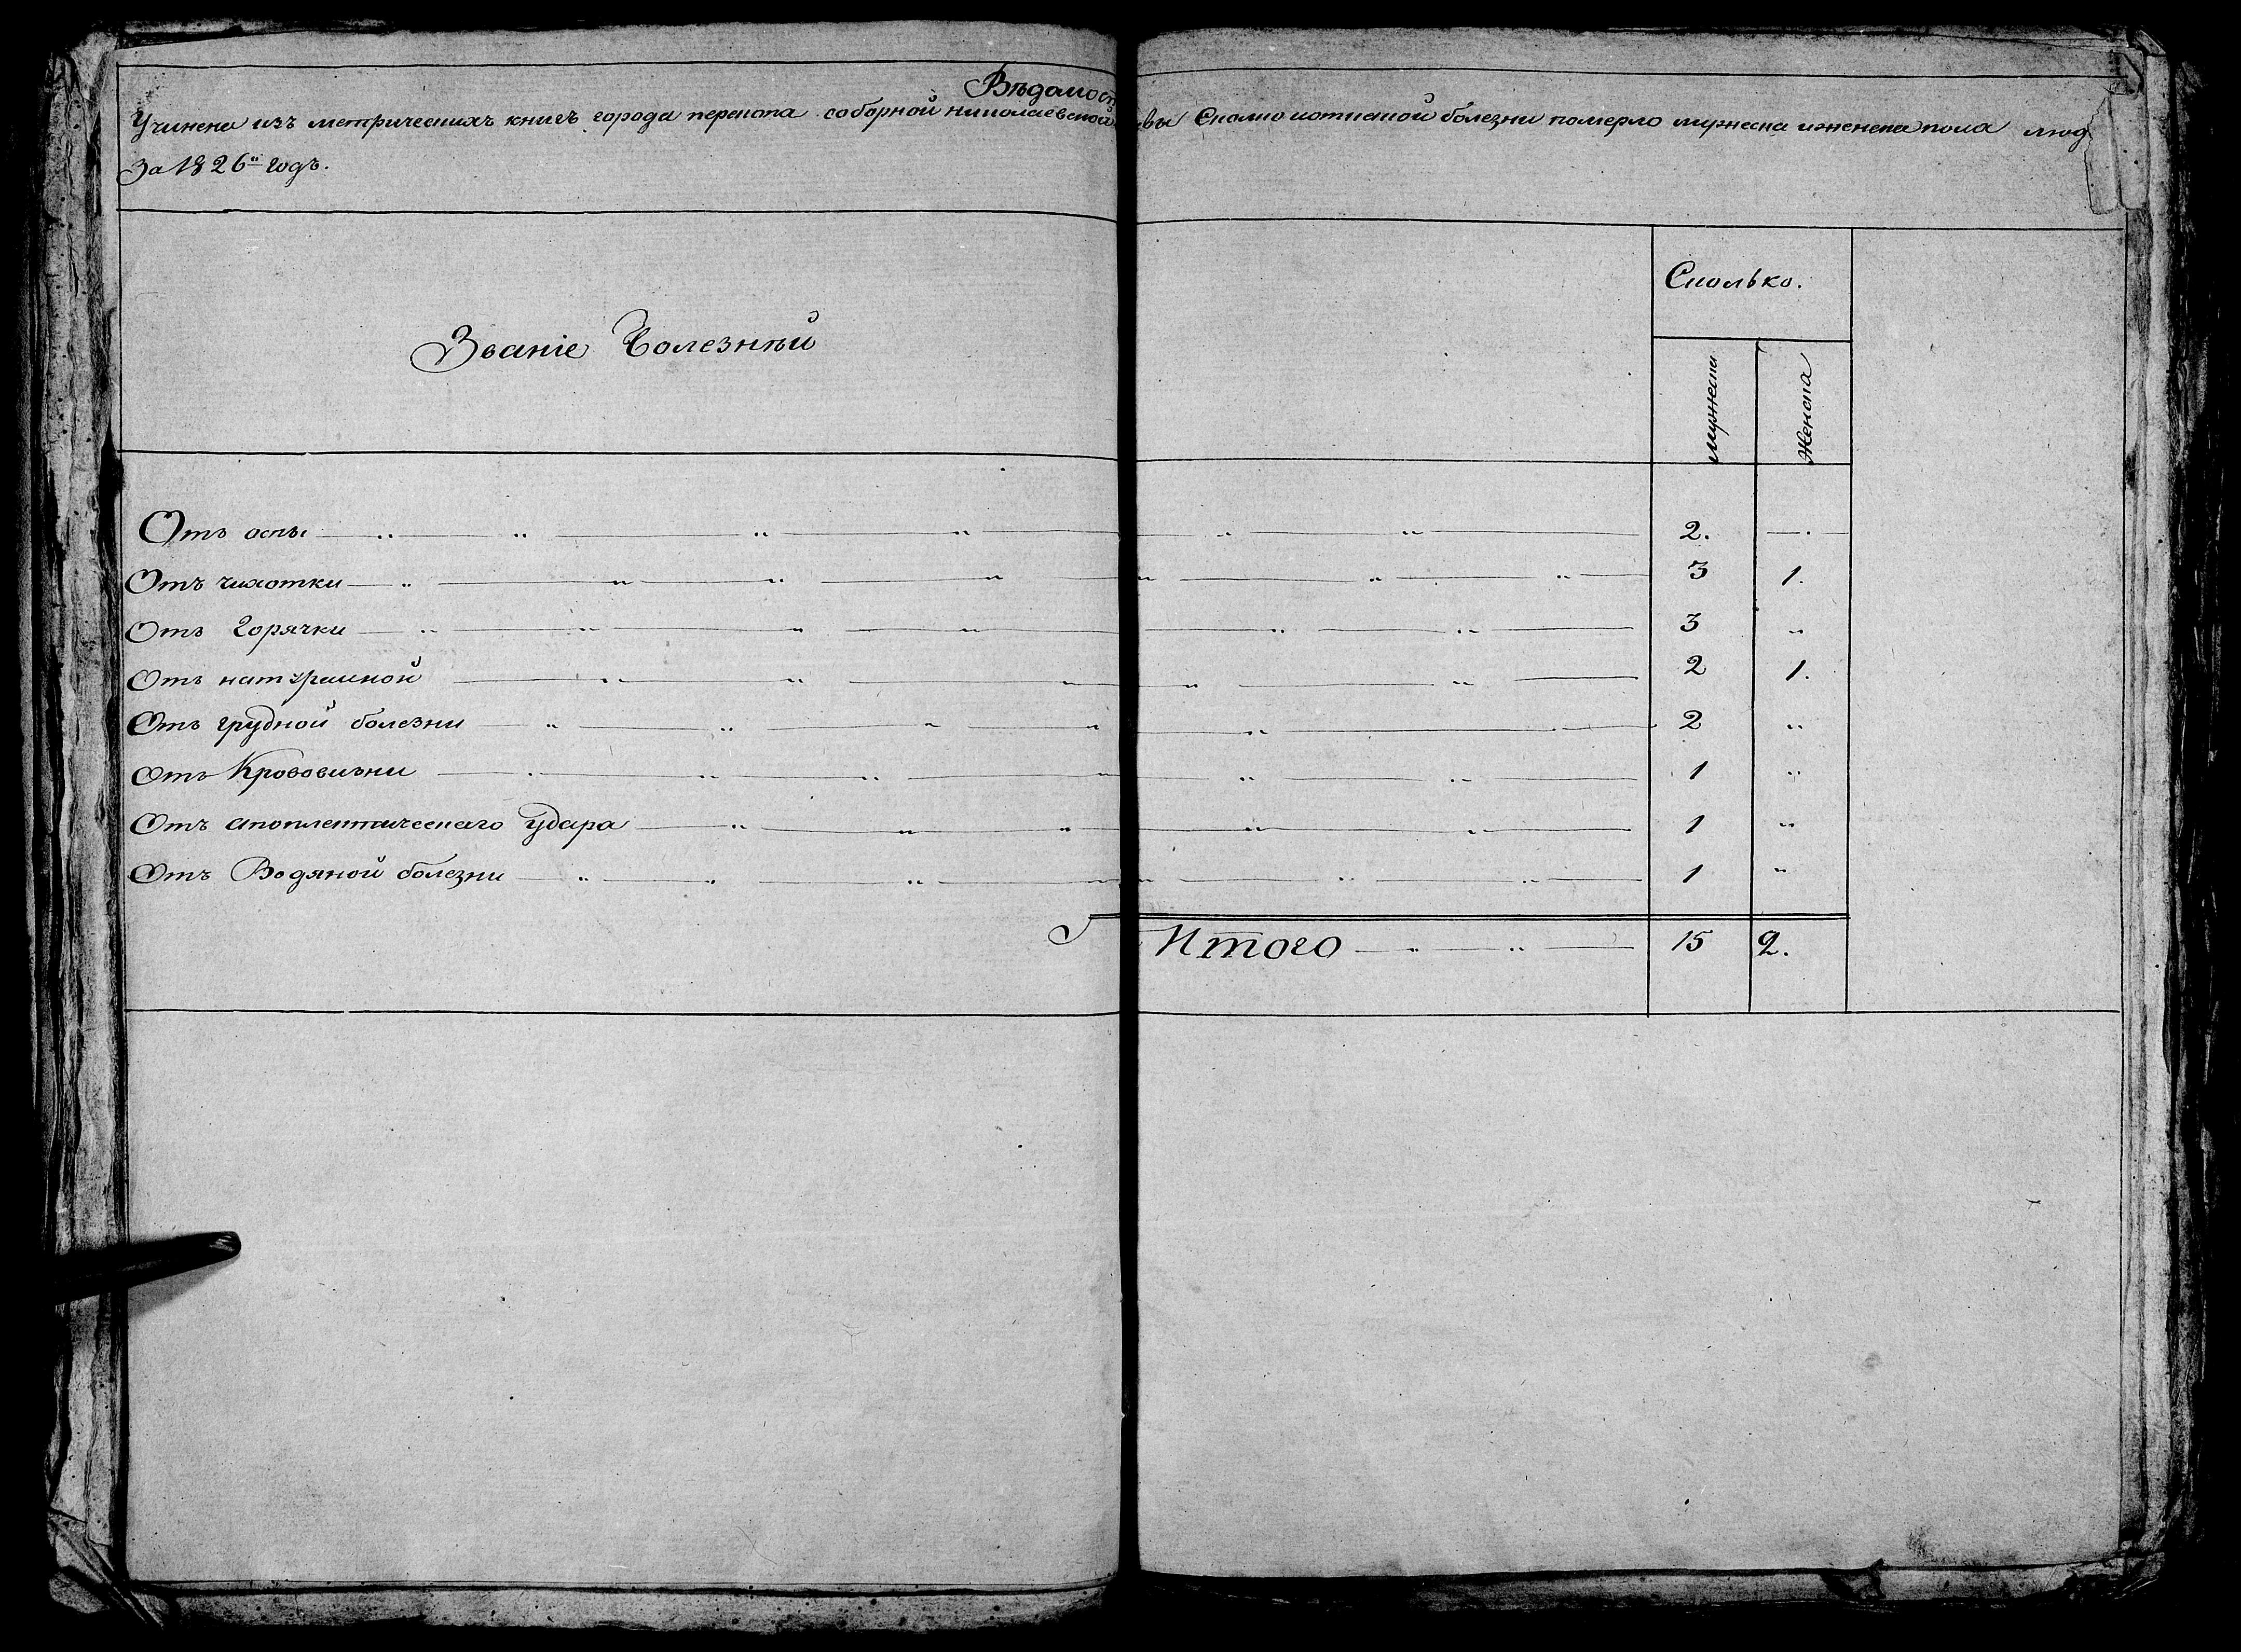 Вѣдамост
Учинена изъ метрическихъ книгъ города перекопа соборной николаевской вы Сколко иоткакой болезни померло мужеска иженска пола люд
За 1826й годъ.
Званіе Болезнѣй
Сколько.
мужеска Женска
Отъ оспы 2. —
Отъ чихотки 3 1.
Отъ Горячки 3 „
Отъ натуралной 2 1.
Отъ грудной болезни 2 „
Отъ 1 „
Отъ апоплектическаго удара 1 „
Отъ Водяной болезни 1 „
Итого 15 2.